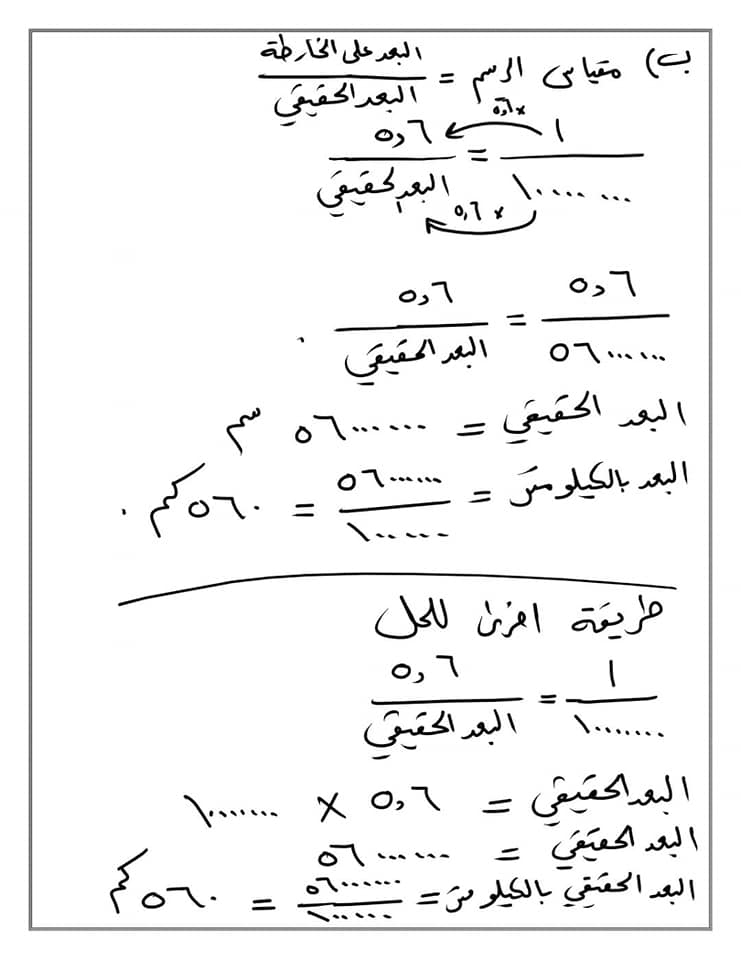 ب) مقياس الرسم = البعد على الخارطة / البعد الحقيقي
×٥,٦
١ / ١٠٠٠٠٠٠٠ = ٥,٦ / البعد الحقيقي
×٥,٦
٥,٦ / ٥٦٠٠٠٠٠٠ = ٥,٦ / البعد الحقيقي
البعد الحقيقي = ٥٦٠٠٠٠٠٠ سم
البعد بالكيلو متر = ٥٦٠٠٠٠٠٠ / ١٠٠٠٠٠ = ٥٦٠ كم
طريقة اخرى للحل
١ / ١٠٠٠٠٠٠٠ = ٥,٦ / البعد الحقيقي
البعد الحقيقي = ٥,٦ × ١٠٠٠٠٠٠٠
البعد الحقيقي = ٥٦٠٠٠٠٠٠
البعد الحقيقي بالكيلو متر = ٥٦٠٠٠٠٠٠ / ١٠٠٠٠٠ = ٥٦٠ كم